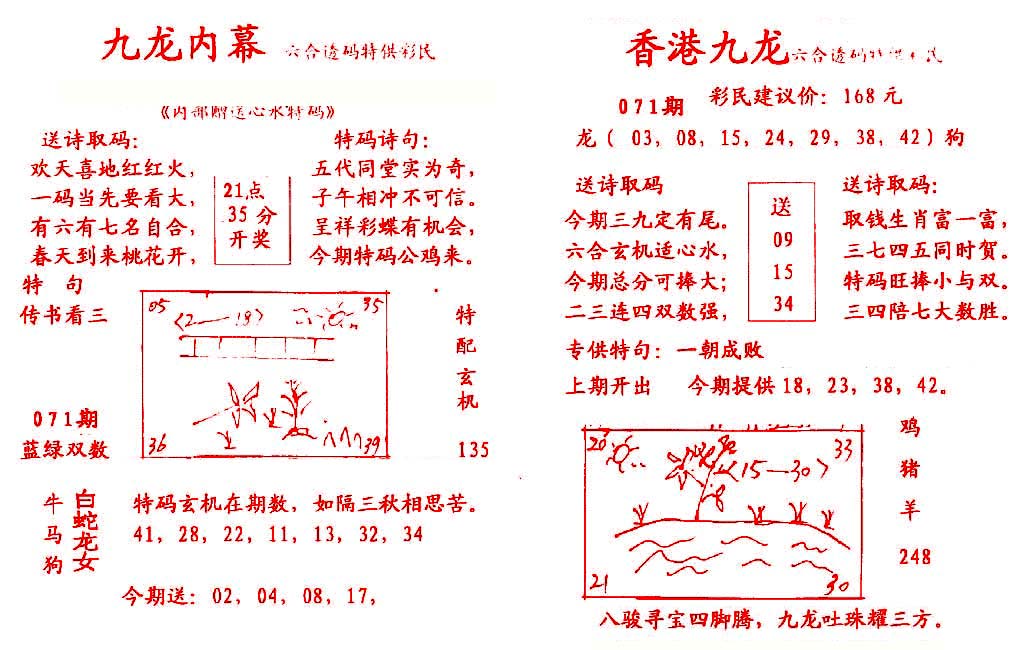 九龙内幕 六合透码特供彩民
《内部赠送心水特码》
送诗取码：
欢天喜地红红火，
一码当先要看大，
有六有七名自合，
春天到来桃花开，
21点
35分
开奖
特码诗句：
五代同堂实为奇，
子午相冲不可信。
呈祥彩蝶有机会，
今期特码公鸡来。
特 句
传书看三
071期
蓝绿双数
05
35
〈2—18〉
36
39
特
配
玄
机
135
牛
马
狗
白蛇龙女
特码玄机在期数，如隔三秋相思苦。
41，28，22，11，13，32，34
今期送：02，04，08，17，
香港九龙 六合透码特供彩民
071期 彩民建议价：168元
龙（ 03，08，15，24，29，38，42）狗
送诗取码
今期三九定有尾。
六合玄机适心水，
今期总分可捧大；
二三连四双数强，
送
09
15
34
送诗取码：
取钱生肖富一富，
三七四五同时贺。
特码旺捧小与双。
三四陪七大数胜。
专供特句：一朝成败
上期开出 今期提供18，23，38，42。
20
33
〈15—30〉
21
30
鸡
猪
羊
248
八骏寻宝四脚腾，九龙吐珠耀三方。